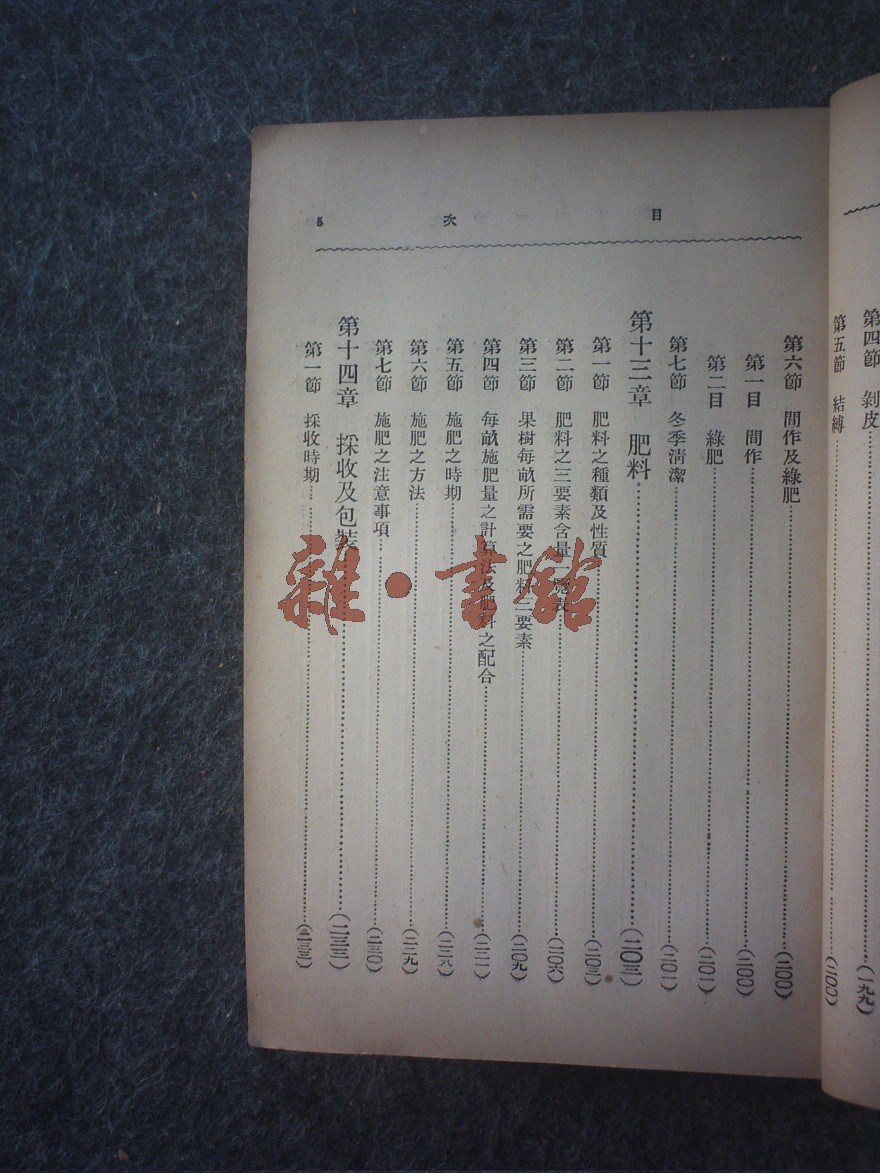 第四節　剝皮……(一九九)
第五節　結縛……(二〇〇)
目次　5
第六節　間作及綠肥……(二〇〇)
第一目　間作……(二〇〇)
第二目　綠肥……(二〇一)
第七節　冬季清潔……(二〇一)
第十三章　肥料……(二〇三)
第一節　肥料之種類及性質……(二〇三)
第二節　肥料之三要素含量一覽表……(二〇六)
第三節　果樹每畝所需要之肥料三要素……(二〇九)
第四節　每畝施肥量之計算法及肥料之配合……
第五節　施肥之時期……(二二六)
第六節　施肥之方法……(二二九)
第七節　施肥之注意事項……(二三〇)
第十四章　採收及包裝……(二三三)
第一節　採收時期……(二三三)
雜·書館